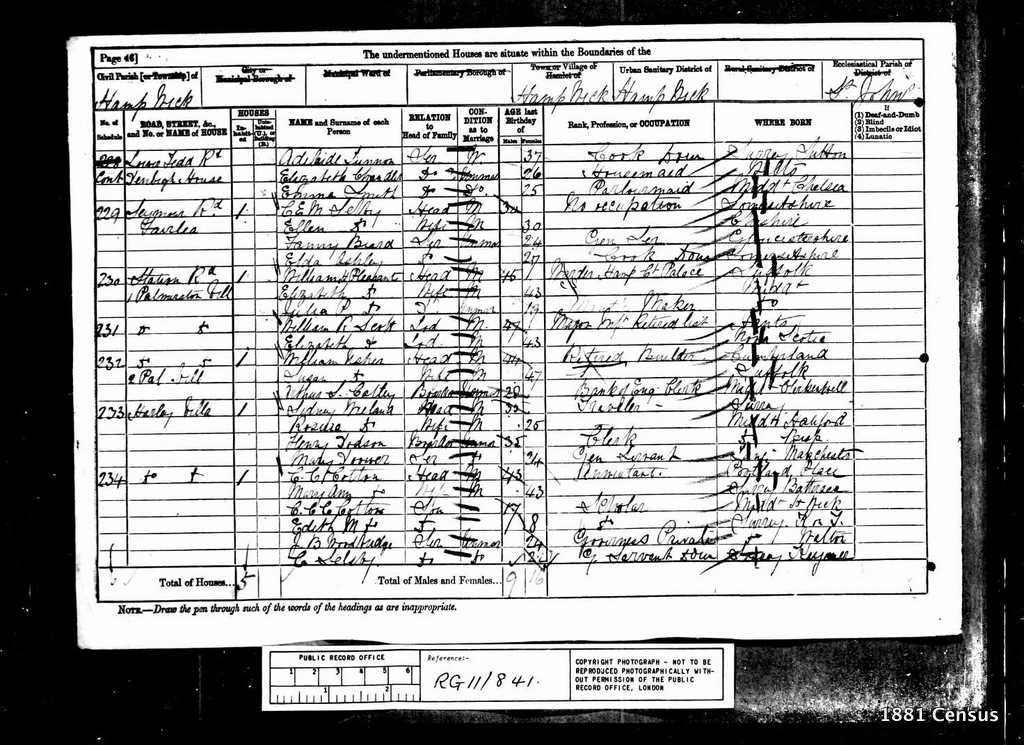 Page 46]
The undermentioned Houses are situate within the Boundaries of the
Civil Parish [or Township] of
City or Municipal Borough of
Municipal Ward of
Parliamentary Borough of
Town or Village of Hamlet of
Urban Sanitary District of
Rural Sanitary District of
Ecclesiastical Parish or District of
Hamp Wick Hamp Wick Hamp Wick St John's
No. of Schedule
ROAD, STREET, &c., and No. or NAME of HOUSE
HOUSES
Inhabited
Uninhabited (U.), or Building (B.)
NAME and Surname of each Person
RELATION to Head of Family
CONDITION as to Marriage
AGE last Birthday of
Males Females
Rank, Profession, or OCCUPATION
WHERE BORN
If
(1) Deaf-and-Dumb
(2) Blind
(3) Imbecile or Idiot
(4) Lunatic
Lower Tedd Rd Adelaide Ser W 37 Cook Dom Surrey Sutton
Cont Denbigh House Elizabeth Do 26 Housemaid
Emma Smith Do Do 25 Parlourmaid Middx Chelsea
229 Seymour Rd 1 C.E.M. Selby Head M 34 No occupation Somersetshire
Fairlea Ellen Do Wife M 30 Cheshire
Fanny Beard Ser 24 Gen Ser Gloucestershire
27 Cook Dom Somersetshire
230 Station Rd 1 William H Pleasant Head M 46 Warder Hamp Ct Palace Suffolk
1 Palmerston Vill Elizabeth Do Wife M 43 Middx
Julia P Do 19 Maker Do
231 Do Do William R Scott Lod M 47 Major Retired list
Elizabeth Do Lod M 43 Nova Scotia
232 Do Do 1 William Head M Retired Builder Cumberland
2 Pal Vill Susan Do Wife M 47 Suffolk
Boarder 28 Bank of Eng Clerk Middx Clerkenwell
233 Harley Villa 1 Sydney Head M 32 Traveller Surrey
Rosina Do Wife M 25 Middx
Henry Dodson Boarder 35 Clerk Do
Mary Ser Do 24 Gen Servant Manchester
234 Do Do 1 C.C. Cotton Head M 43 Accountant Portland Place
Mary Ann Do Wife M 43 Surrey Battersea
C.C.C. Cotton Son 17 Scholar Middx
Edith M Do 8 Do Surrey
J B Woodbridge Ser 24 Governess Private Walton
C Selsby Do Do Servant Dom
Total of Houses... 5
Total of Males and Females... 9 16
NOTE.—Draw the pen through such of the words of the headings as are inappropriate.
PUBLIC RECORD OFFICE
1 2 3 4 5 6
1 2
Reference:-
RG11/841.
COPYRIGHT PHOTOGRAPH - NOT TO BE
REPRODUCED PHOTOGRAPHICALLY WITH-
OUT PERMISSION OF THE PUBLIC
RECORD OFFICE, LONDON
1881 Census